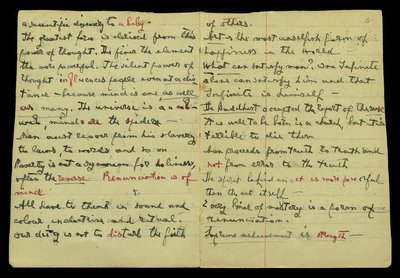 a scientific discovery to a baby.
The greatest force is derived from the
power of thought. The finer the element
the more powerful. The silent power of
thought influences people even at a dis
tance — because mind is one as well
as many. The universe is a cob
web, minds are the spiders —
Man must recover from his slavery
to laws to words and so on
Poverty is not a synonym for holiness,
often the reverse Renunciation is of
mind.
All have to think in sound and
colour in doctrines and ritual.
our duty is not to disturb the faith
of others.
Art is the most unselfish form of
happiness in the world —
What can satisfy man? One Infinite
alone can satisfy him and that
Infinite is himself —
The Buddhist accepted the
It is well to be born in a church, but it is
terrible to die there
Man proceeds from truth to truth and
not from error to the truth
The spirit behind an act is more powerful
than the act itself —
Every kind of mastery is a form of
renunciation.
Supreme achievement is strength —